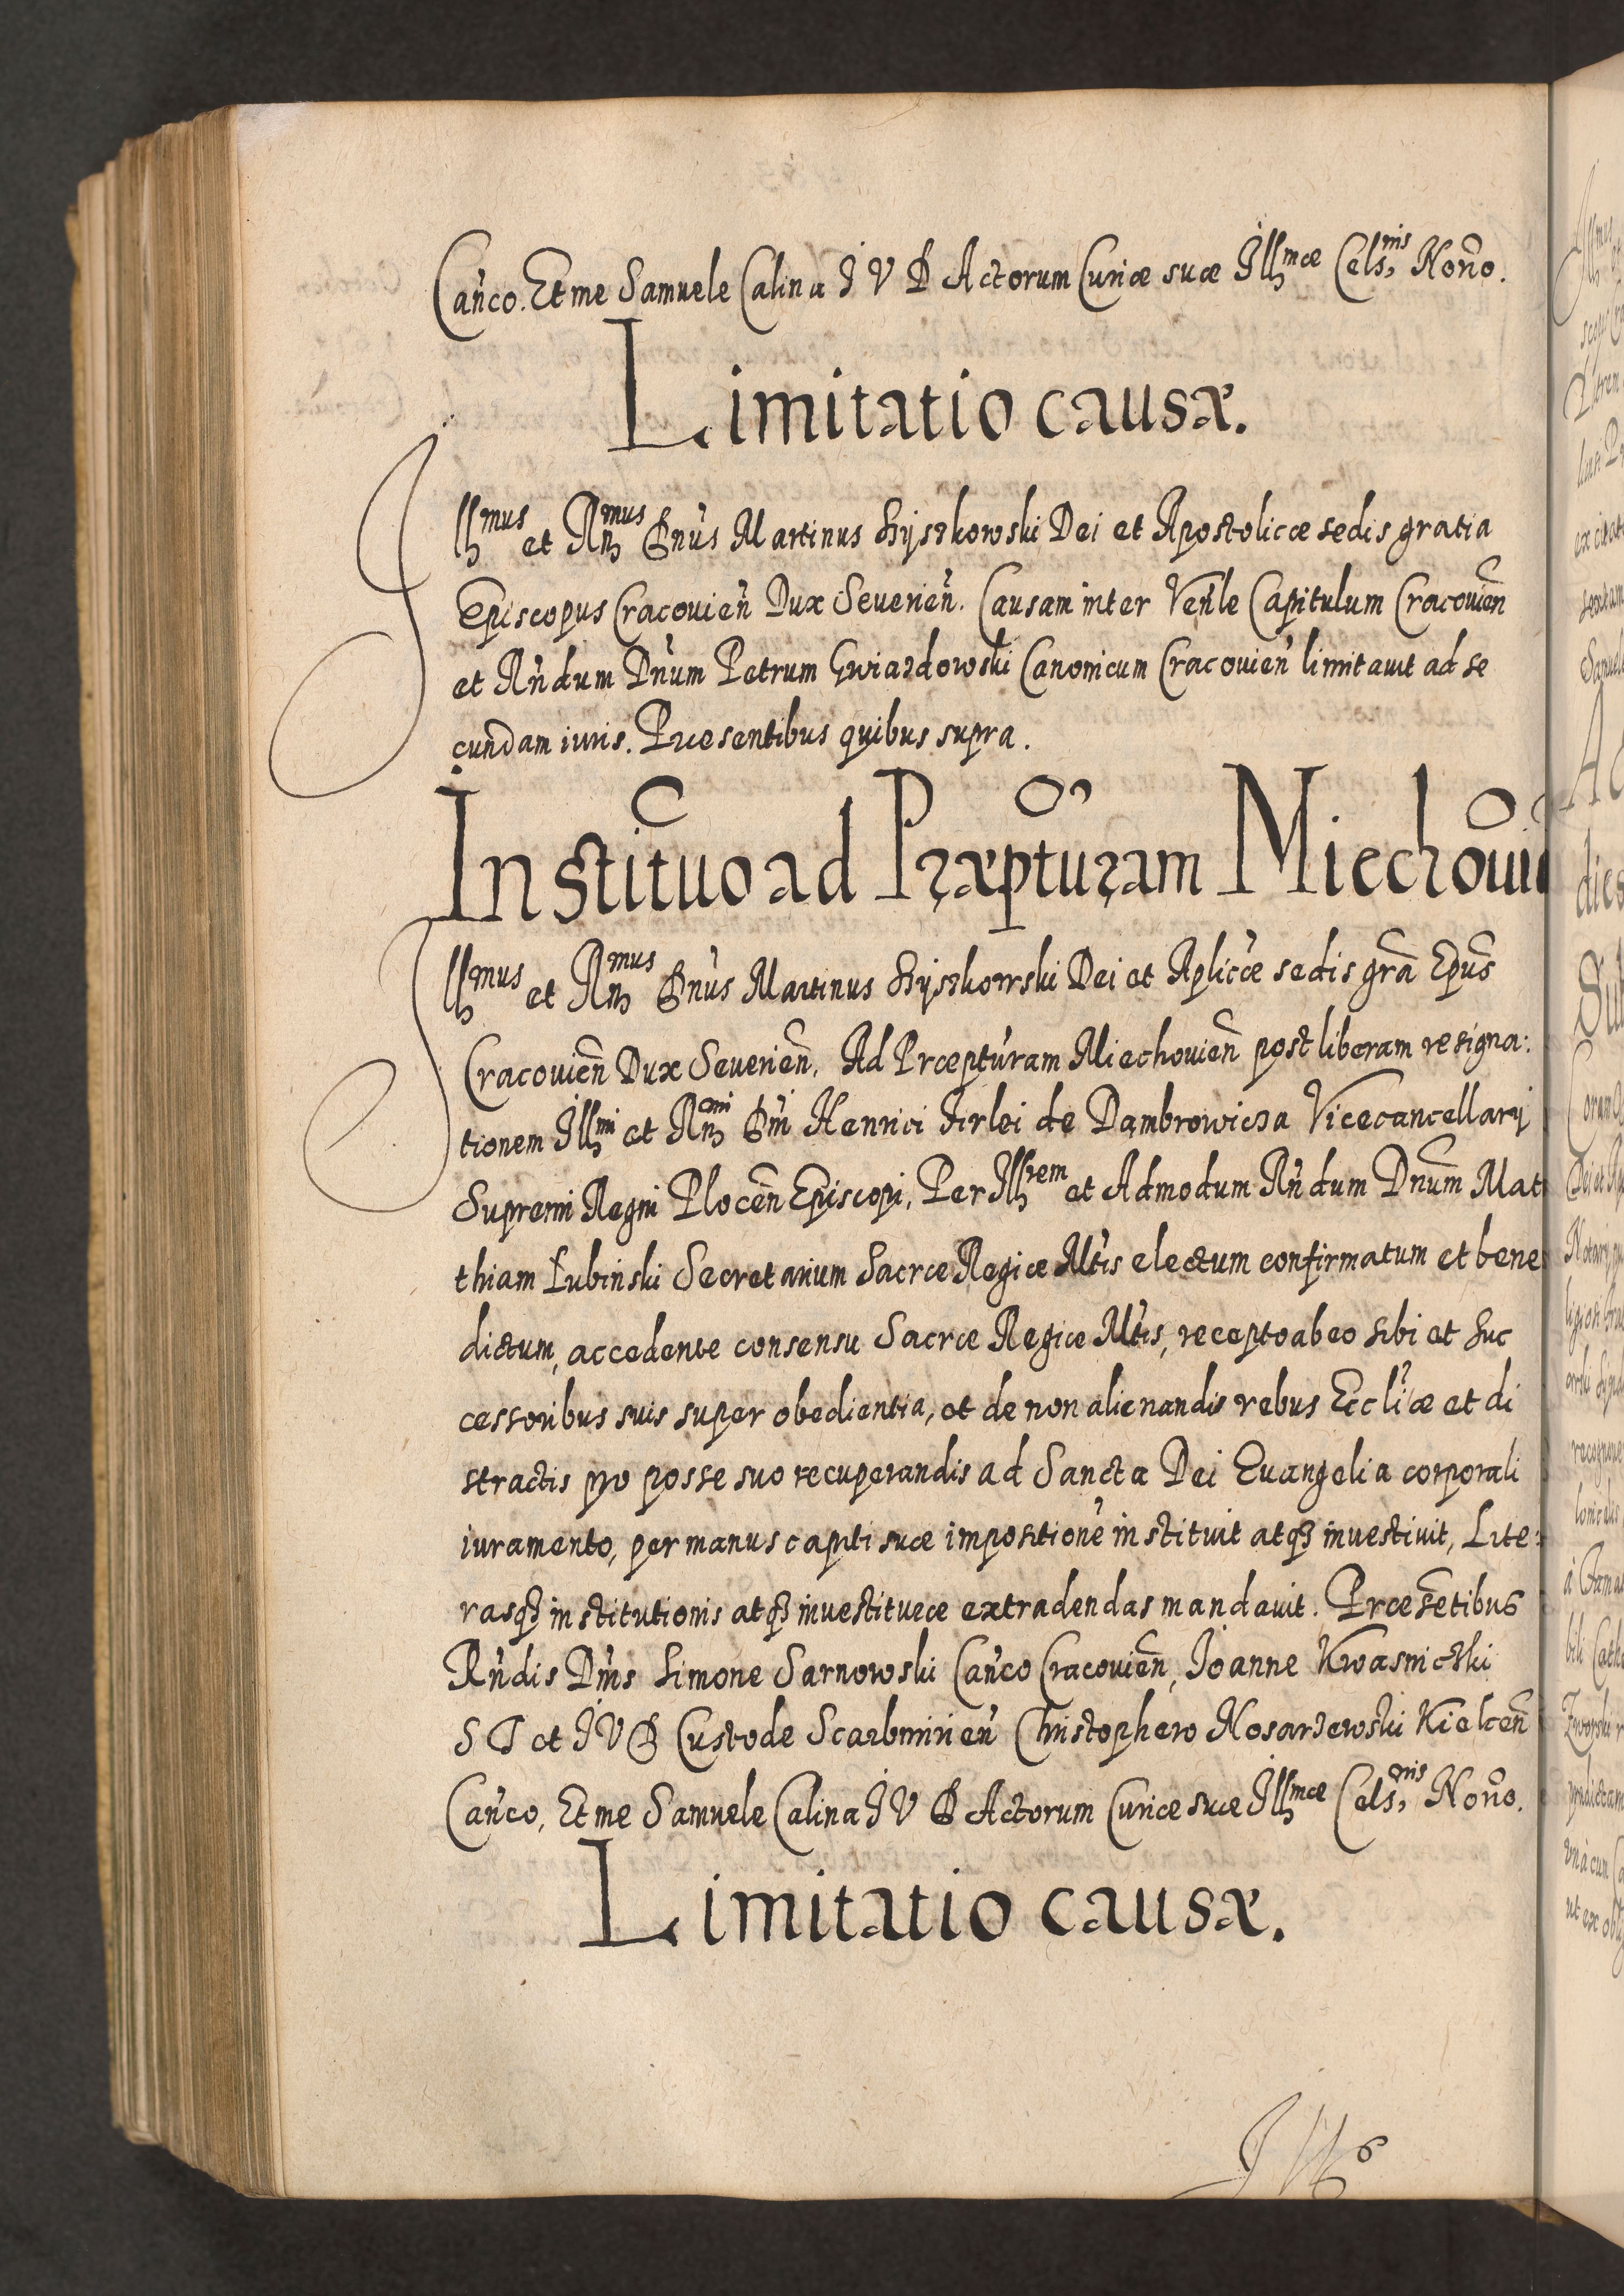 Can̄co. Et me Samuele Calina I V D Actorum Curiæ suæ Illmæ Cels,nis Nor̃io.
Limitatio causæ.
Illmus et Rnmus Dnũs Martinus Szyszkowski Dei et Apostolicæ sedis gratia
Episcopus Cracovień Dux Severień. Causam inter Veñle Capitulum Cracovień
et Rñdum Dñum Petrum Gwiazdowski Canonicum Cracovień limitavit ad se
cundam iuris. Præsentibus quibus supra.
Institũo ad Præptũram Miechoui
Illmus et Rnmus Dnũs Martinus Szyszkowski Dei et Aplicæ̃ sedis grã Epũs
Cracouień Dux Seuerień. Ad Præptũram Miechouień post liberam resigna:
tionem Illmi et Rnmi Dñi Henrici Firlei de Dąmbrowicza Vicecancellarij
Supremi Regni Plocen̄ Episcopi, Per Illrem et Admodum Rñdum Dnũm Mat
thiam Łubinski Secretarium Sacræ Regiæ Mt̃is electum confirmatum et bene
dictum, accedente consensu Sacræ Regiæ Mt̃is, recepto ab eo sibi et suc
cessoribus suis super obedientia, et de non alienandis rebus Eccl̃iæ et di
stractis pro posse suo recuperandis ad Sancta Dei Euangelia corporali
iuramento, per manus capiti suæ impositionẽ instituit atqȝ inuestiuit, Lite:
rasqȝ institutionis atqȝ inuestituræ extradendas mandauit. Præsẽtibus
Rñdis Dñis Simone Sarnowski Can̄co Cracouień, Ioanne Kwasnicski
S T et I V D Custode Scarbmirień Christophero Nosarzewski Kielcen̄
Can̄co, Et me Samuele Calina I V D Actorum Curiæ suæ Illmæ Cels,nis Nor̃io.
Limitatio causæ.
Illm9